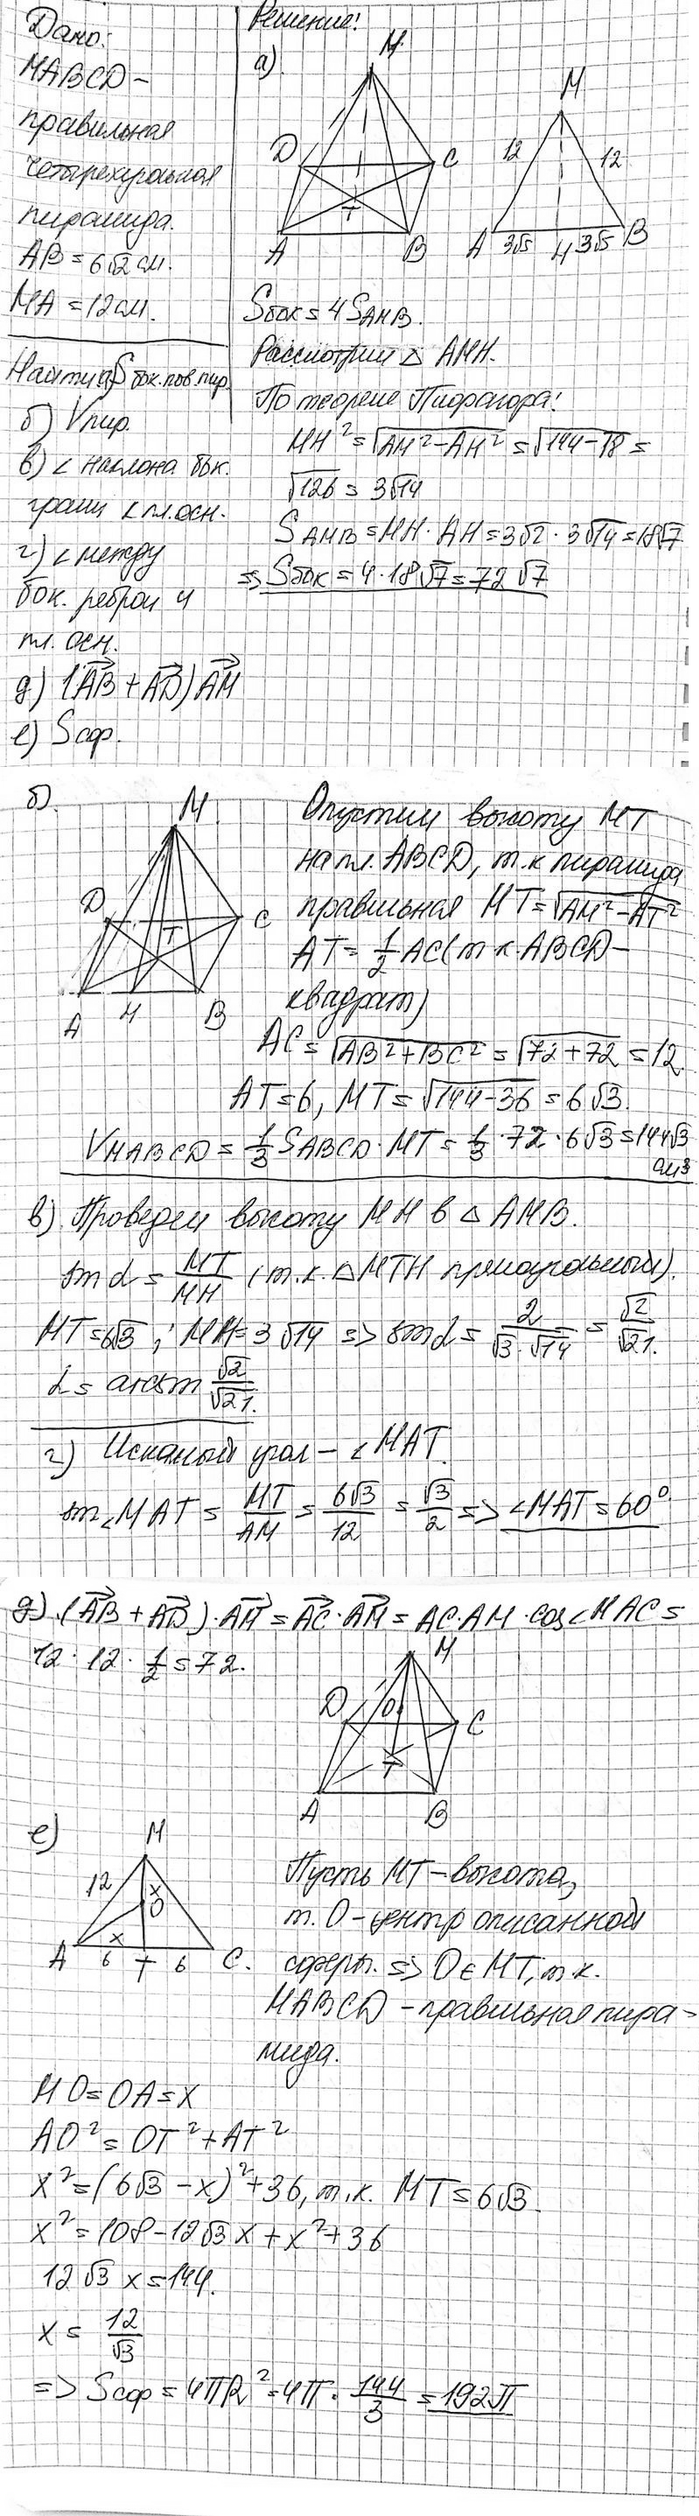 Дано:
MABCD –
правильная
четырехугольная
пирамида.
AB = 6√2 см.
MA = 12 см.
Найти: а) S бок. пов. пир.
б) Vпир.
в) ∠ наклона бок.
грани к пл. осн.
г) ∠ между
бок. ребром и
пл. осн.
д) (AB + AD) AM
е) Sсф.
Решение:
а)
M
D
C
T
A
B
M
12
12
A
3√5
H
3√5
B
Sбок = 4 SAMB.
Рассмотрим △ AMH.
По теореме Пифагора:
MH² = √AM² – AH² = √144 – 18 =
√126 = 3√14
SAMB = MH · AH = 3√2 · 3√14 = 18√7
=> Sбок = 4 · 18√7 = 72√7
б).
M
D
C
T
A
H
B
Опустим высоту MT
на пл. ABCD, т.к пирамида
правильная MT = √AM² – AT²
AT = 1/2 AC (т к. ABCD –
квадрат)
AC = √AB² + BC² = √72 + 72 = 12.
AT = 6, MT = √144 – 36 = 6√3.
VMABCD = 1/3 SABCD · MT = 1/3 · 72 · 6√3 = 144√3
см3
в) Проведем высоту MH в △ AMB.
sin α = MT/MH (т.к. △MTH прямоугольный).
MT = 6√3 ; MH = 3√14 => sin α = 2/√3·√14 = √2/√21.
α = arcsin √2/√21.
г) Искомый угол – ∠MAT.
sin∠MAT = MT/AM = 6√3/12 = √3/2 => ∠MAT = 60°
д). (AB + AD) · AM = AC · AM = AC · AM · cos∠MAC =
12 · 12 · 1/2 = 72.
M
D
O
C
T
A
B
е)
M
12
x
O
x
A
6
T
6
C.
Пусть MT – высота,
т. O – центр описанной
сферы. => O ∈ MT, т.к.
MABCD – правильная пира-
мида.
MO = OA = x
AO² = OT² + AT²
x² = (6√3 – x)² + 36, т.к. MT = 6√3.
x² = 108 – 12√3 x + x² + 36
12√3 x = 144.
x = 12/√3
=> Sсф = 4πR² = 4π · 144/3 = 192π